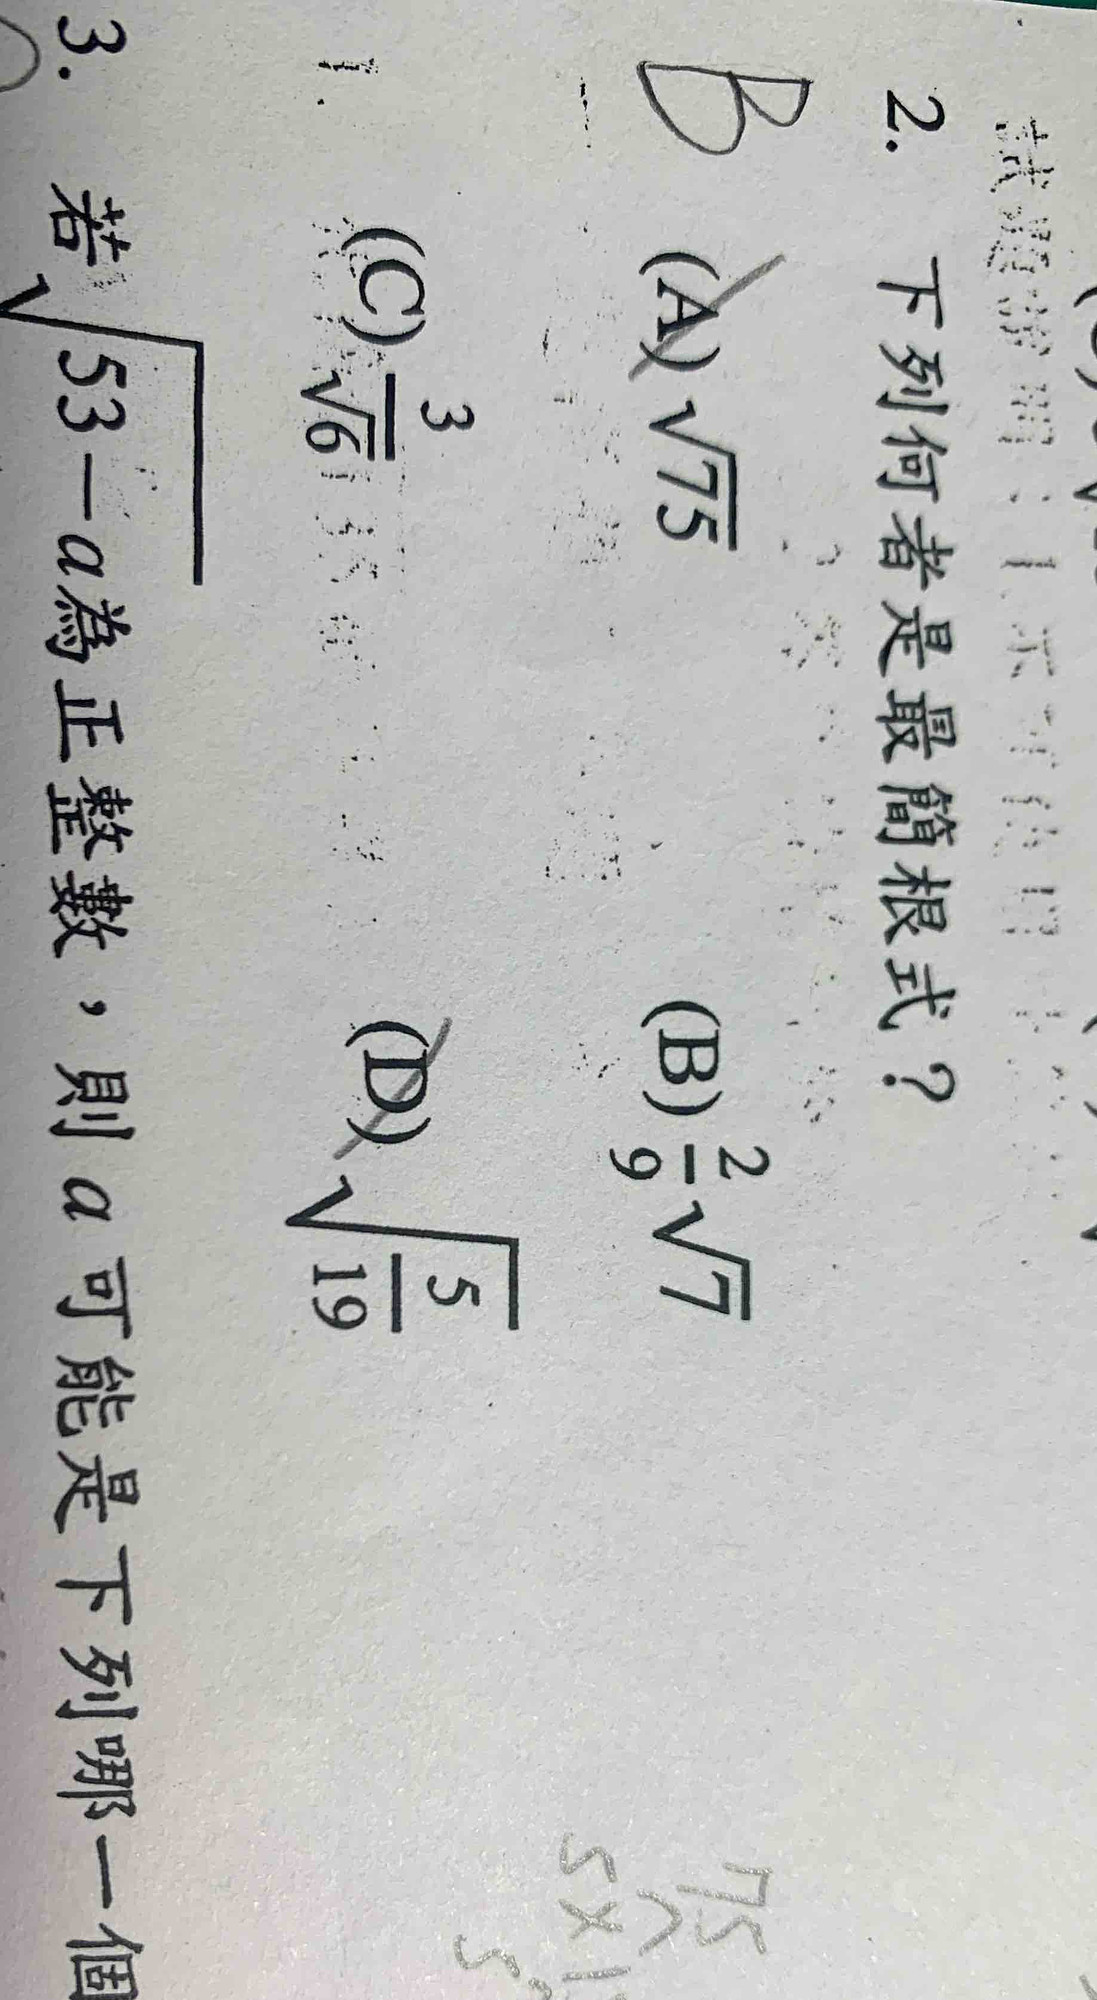 2. 下列何者是最簡根式？
B (A) √75 (B) 2/9 √7
(C) 3/√6 (D) √(5/19)
3. 若√(53－a)為正整數，則 a 可能是下列哪一個
75
5×1
5